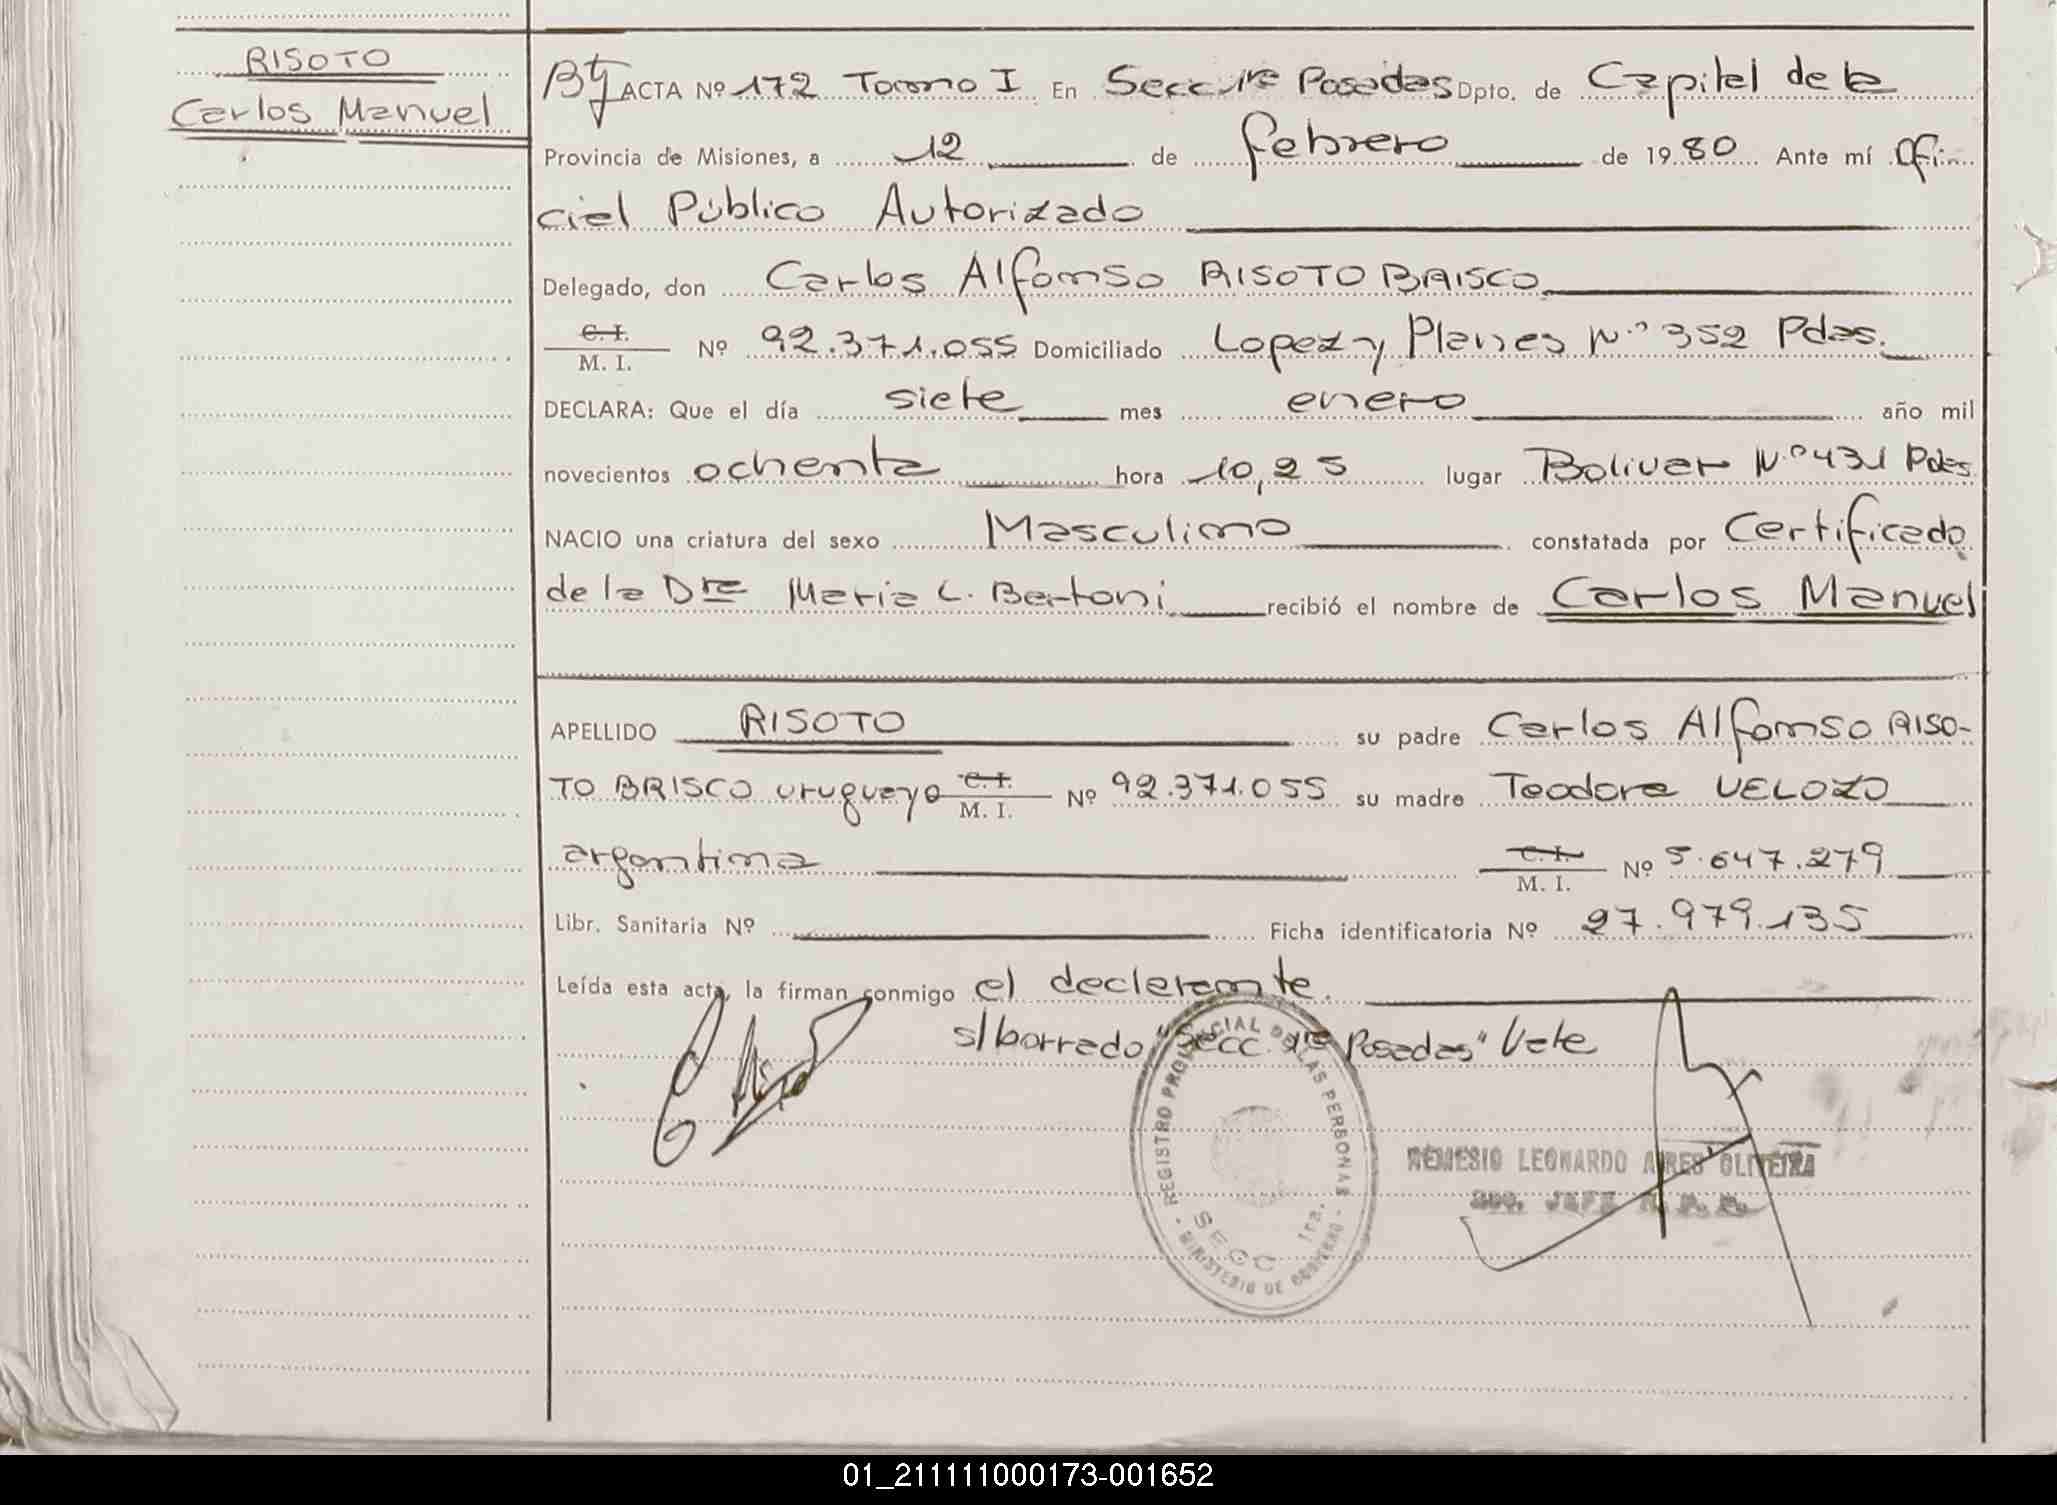 RISOTO
Carlos Manuel
ACTA Nº 172 Tomo I En Secc 1ra Posadas Dpto. de Capital de la
Provincia de Misiones, a 12 de febrero de 1980 Ante mí Ofi-
cial Público Autorizado
Delegado, don Carlos Alfonso RISOTO BRISCO
C. I.
M. I. Nº 92.371.055 Domiciliado Lopez y Planes Nº 352 Pdas.
DECLARA: Que el día siete mes enero año mil
novecientos ochenta hora 10,25 lugar Bolivar Nº 431 Pdas
NACIO una criatura del sexo Masculino constatada por Certificado
de la Dra Maria L. Bertoni recibió el nombre de Carlos Manuel
APELLIDO RISOTO su padre Carlos Alfonso RISO-
TO BRISCO uruguayo C. I. M. I. Nº 92.371.055 su madre Teodora VELOZO
argentina C. I. M. I. Nº 5.647.279
Libr. Sanitaria Nº Ficha identificatoria Nº 27.979.135
Leída esta acta, la firman conmigo el declarante.
s/borrado "Secc. 1ra Posadas" Vale
REGISTRO PROVINCIAL DE LAS PERSONAS
SECC 1ra.
MINISTERIO DE GOBIERNO
NEMESIO LEONARDO AIRES OLIVEIRA
JEFE
01_211111000173-001652